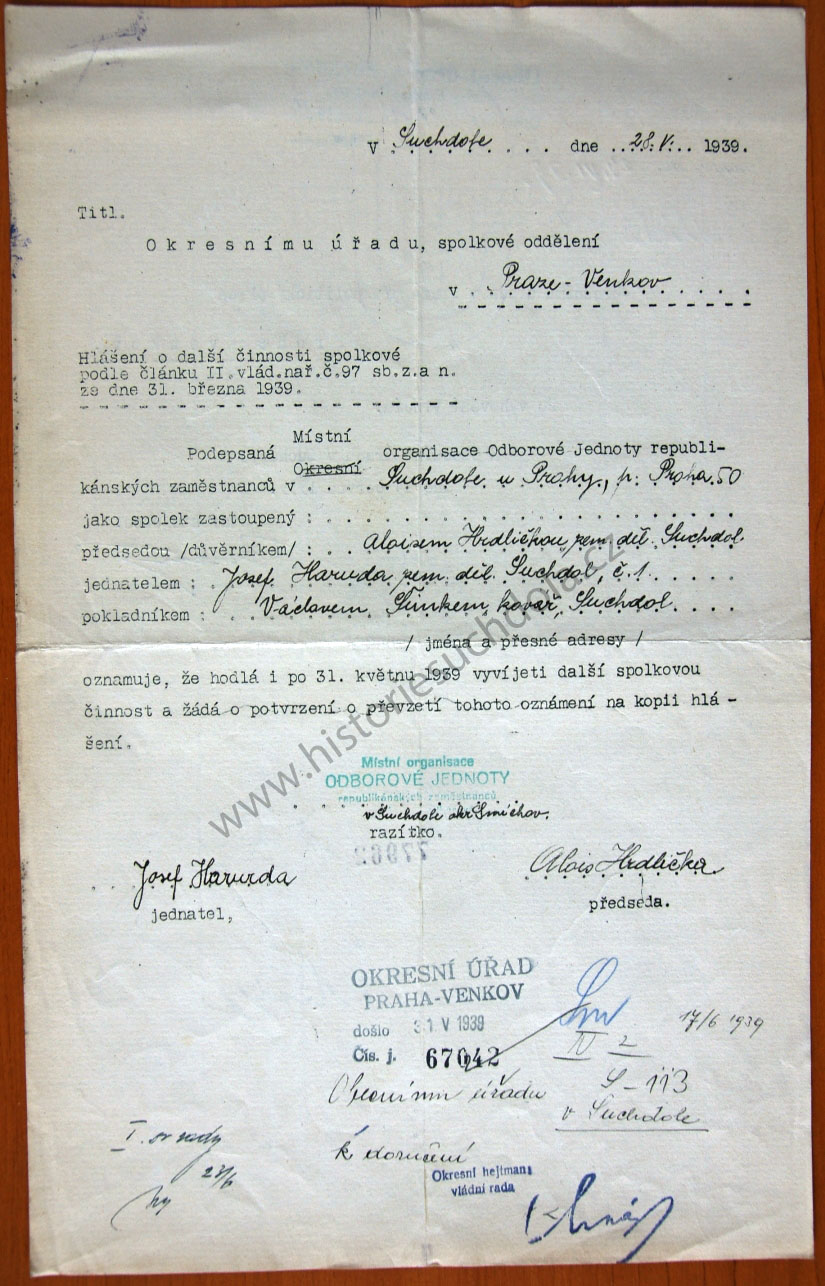 V Suchdole .... dne ..28.V... 1939.
Titl.
Okresnímu úřadu, spolkové oddělení
v Praze-Venkov
Hlášení o další činnosti spolkové
podle článku II.vlád.nař.č.97 sb.z.a n.
ze dne 31. března 1939.
Místní
Podepsaná Okresní organisace Odborové Jednoty republi-
kánských zaměstnanců v .... Suchdole u Prahy, p. Praha 50
jako spolek zastoupený :
předsedou /důvěrníkem/ : .. Aloisem Hrdličkou zem. děl. Suchdol
jednatelem : Josef Haruda, zem. děl. Suchdol, č.1.
pokladníkem : Václavem, kovář, Suchdol.
/ jména a přesné adresy /
oznamuje, že hodlá i po 31. květnu 1939 vyvíjeti další spolkovou
činnost a žádá o potvrzení o převzetí tohoto oznámení na kopii hlá -
šení.
www.historiesuchdola.cz
Místní organisace
ODBOROVÉ JEDNOTY
republikánských zaměstnanců
v Suchdole okr Smíchov.
razítko.
77962
Josef Harurda
jednatel,
Alois Hrdlička
předseda.
OKRESNÍ ÚŘAD
PRAHA-VENKOV
došlo 31 V 1939
Čís. j. 67042
17/6 1939
IV 2
S-113
Obecnímu úřadu
v Suchdole
k doručení
23/6
Okresní hejtman:
vládní rada